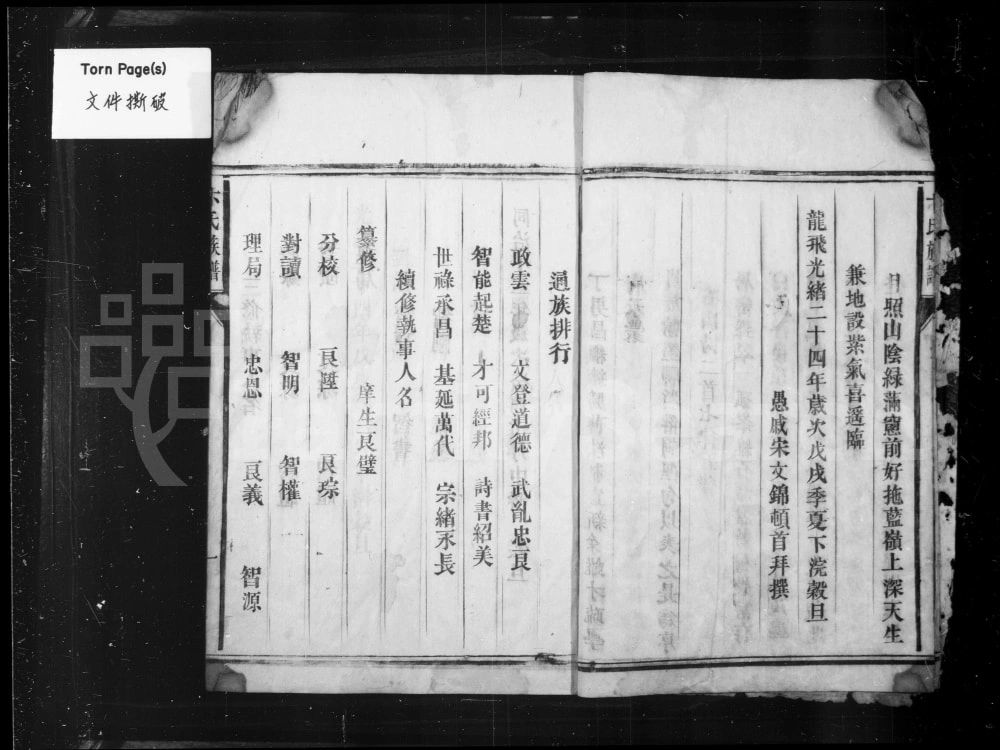 Torn Page(s)
文件撕破
日照山陰綠滿窻前好拖藍嶺上深天生
兼地設紫氣喜遥臨
龍飛光緒二十四年歲次戊戌季夏下浣穀旦
愚戚宋文錦頓首拜撰
通族排行
政雲 文登道德 武亂忠良
智能起楚 才可經邦 詩書紹美
世祿永昌 基延萬代 宗緒永長
續修執事人名
纂修 庠生良璧
分校 良陞 良琮
對讀 智明 智權
理局 忠恩 良義 智源
氏族譜